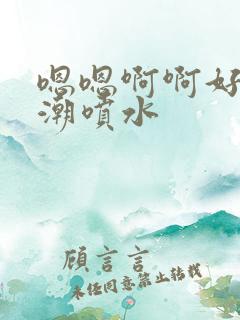 嗯嗯啊啊好
潮喷水
顾言言
未经同意禁止转载